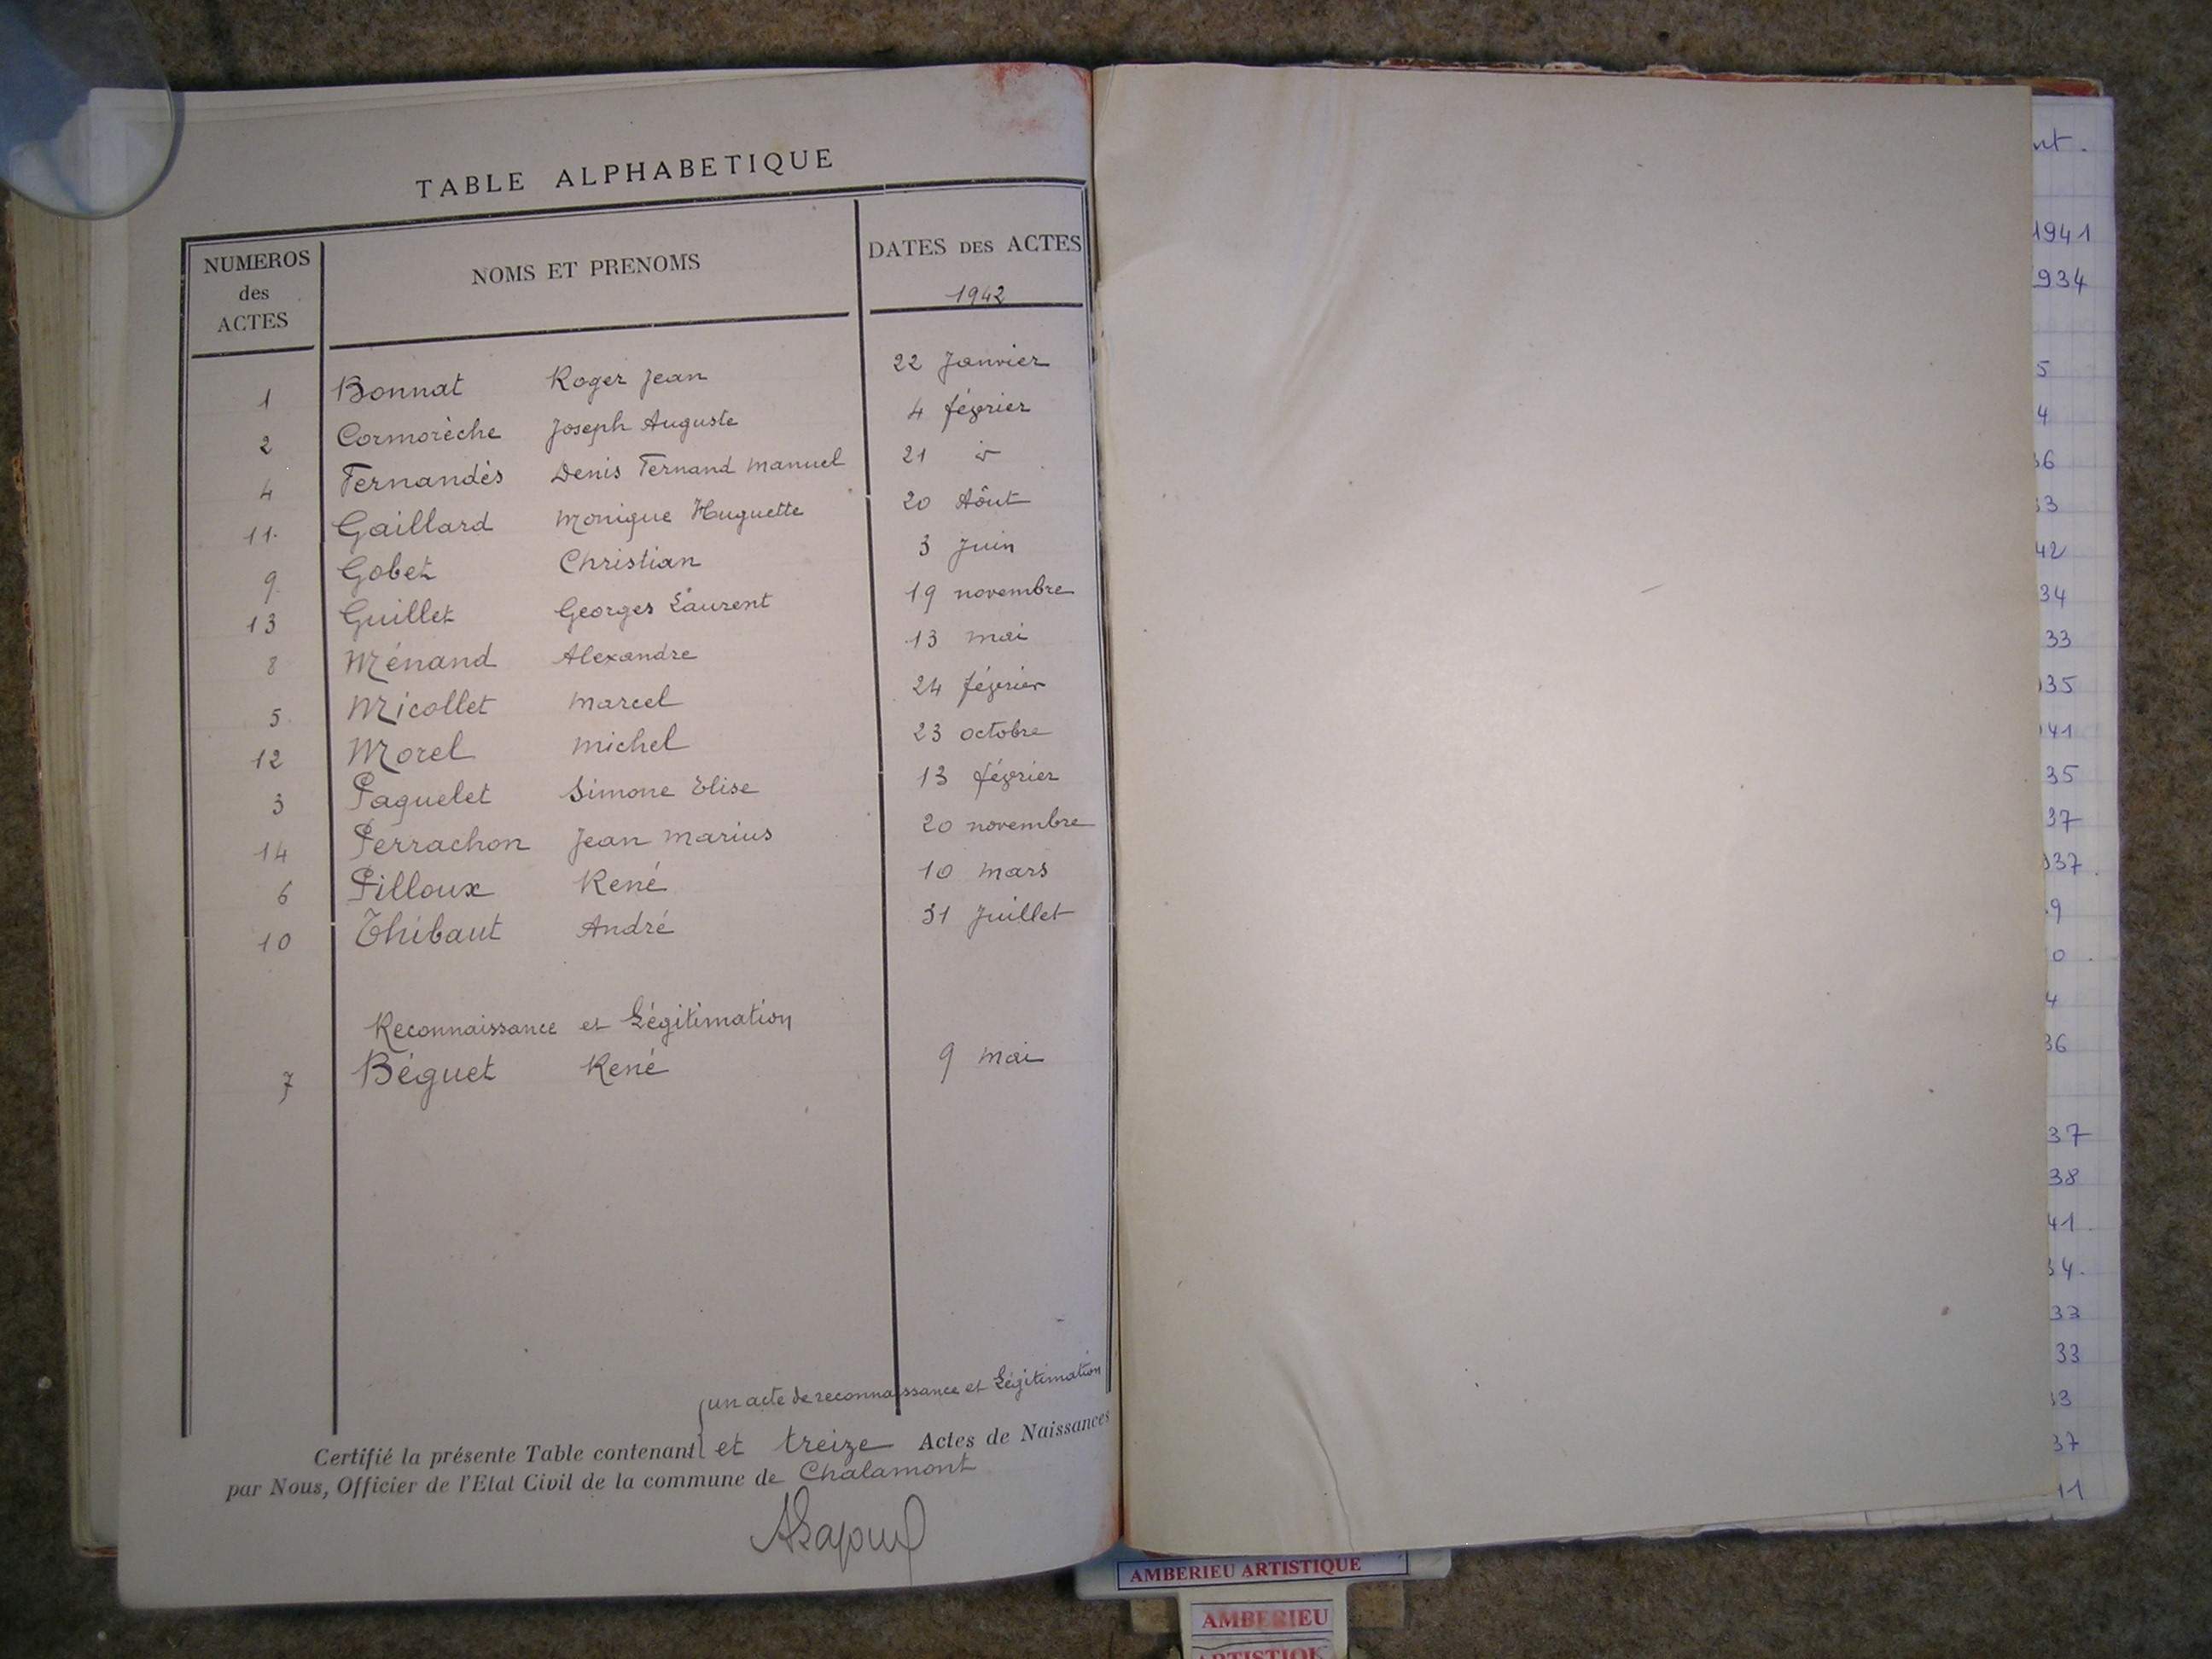 TABLE ALPHABETIQUE
NUMEROS des ACTES NOMS ET PRENOMS DATES DES ACTES 1942
1 Bonnat Roger Jean 22 Janvier
2 Cormorèche Joseph Auguste 4 février
4 Fernandès Denis Fernand Manuel 21 d°
11 Gaillard Monique Huguette 20 Aôut
9 Gobet Christian 3 Juin
13 Guillet Georges Laurent 19 novembre
8 Ménand Alexandre 13 mai
5 Micollet Marcel 24 février
12 Morel Michel 23 octobre
3 Paquelet Simone Elise 13 février
14 Perrachon Jean Marius 20 novembre
6 Pilloux René 10 mars
10 Thibaut André 31 Juillet
Reconnaissance et Légitimation
7 Béguet René 9 mai
un acte de reconnaissance et Légitimation
Certifié la présente Table contenant et treize Actes de Naissances
par Nous, Officier de l'Etat Civil de la commune de Chalamont
nt.
1941
934
5
4
36
33
42
34
33
35
41
35
37
937.
9
0
4
36
37
38
41
34.
33
33
33
37
11
AMBERIEU ARTISTIQUE
AMBERIEU